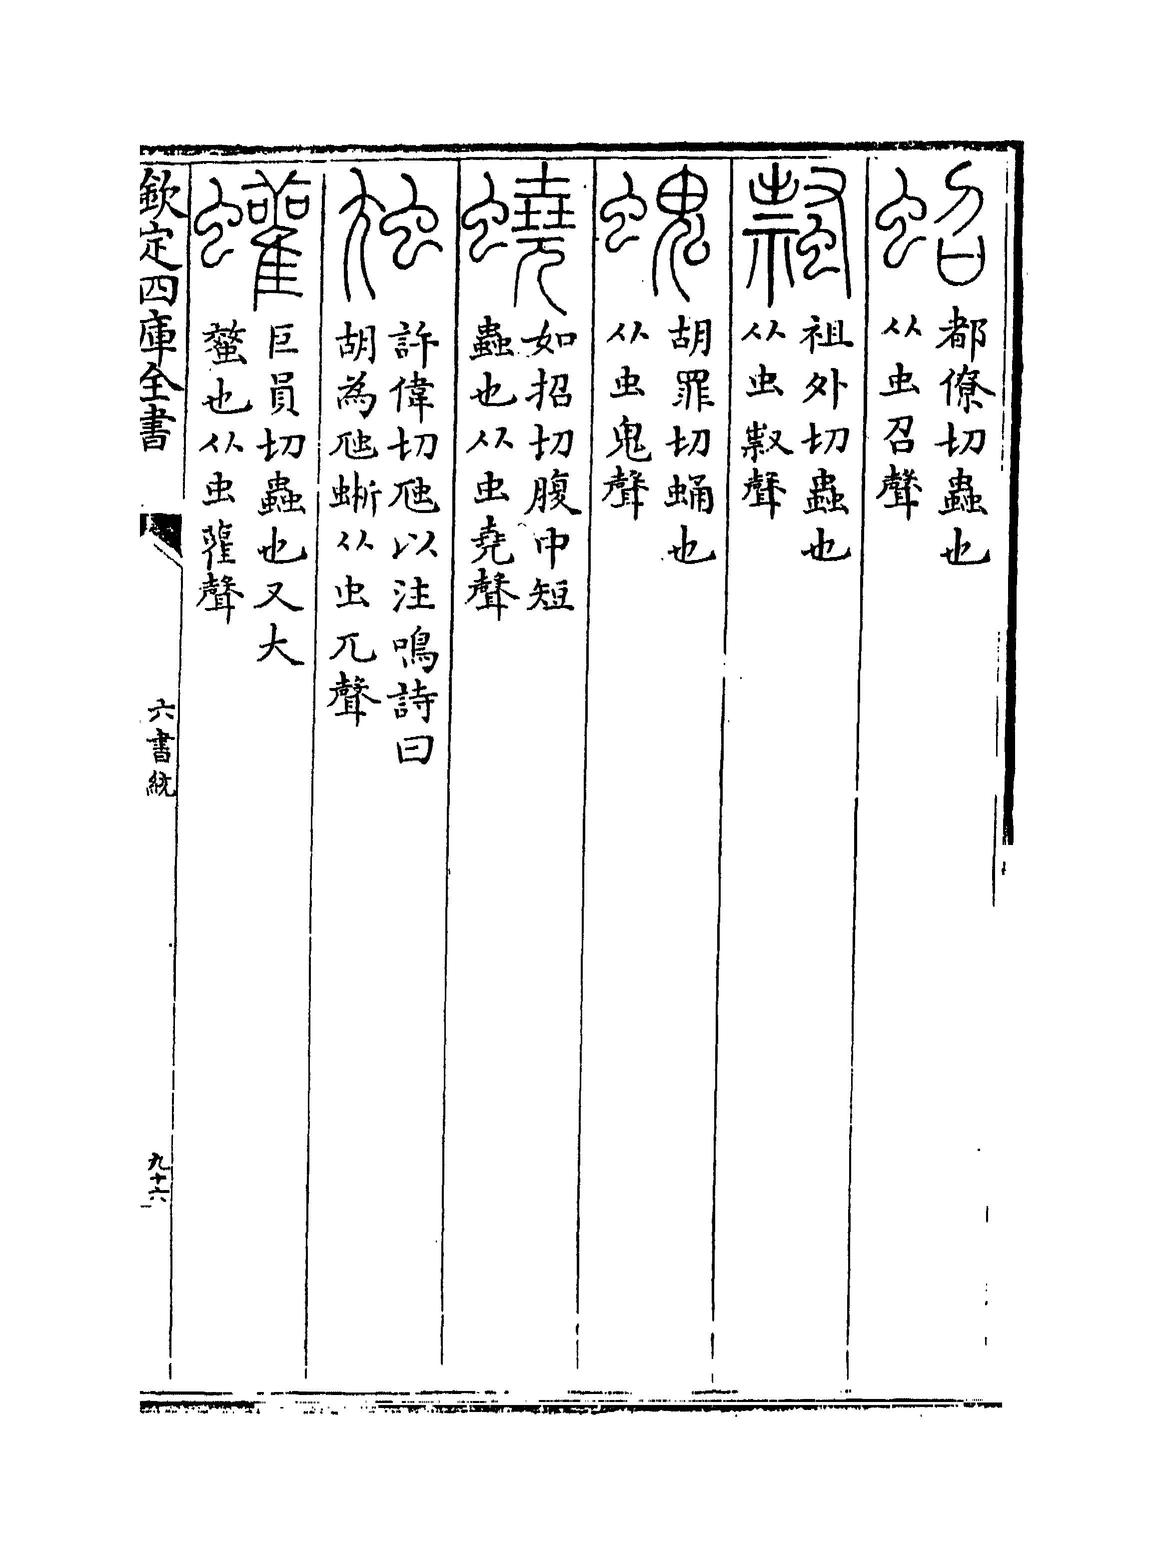 蛁 都僚切蟲也
从虫召聲
祖外切蟲也
从虫㕢聲
螝 胡罪切蛹也
从虫鬼聲
蟯 如招切腹中短
蟲也从虫堯聲
虺 許偉切虺以注鳴詩曰
胡為虺蜥从虫兀聲
蠸 巨員切蟲也又大
螫也从虫雚聲
欽定四庫全書
六書統
九十六